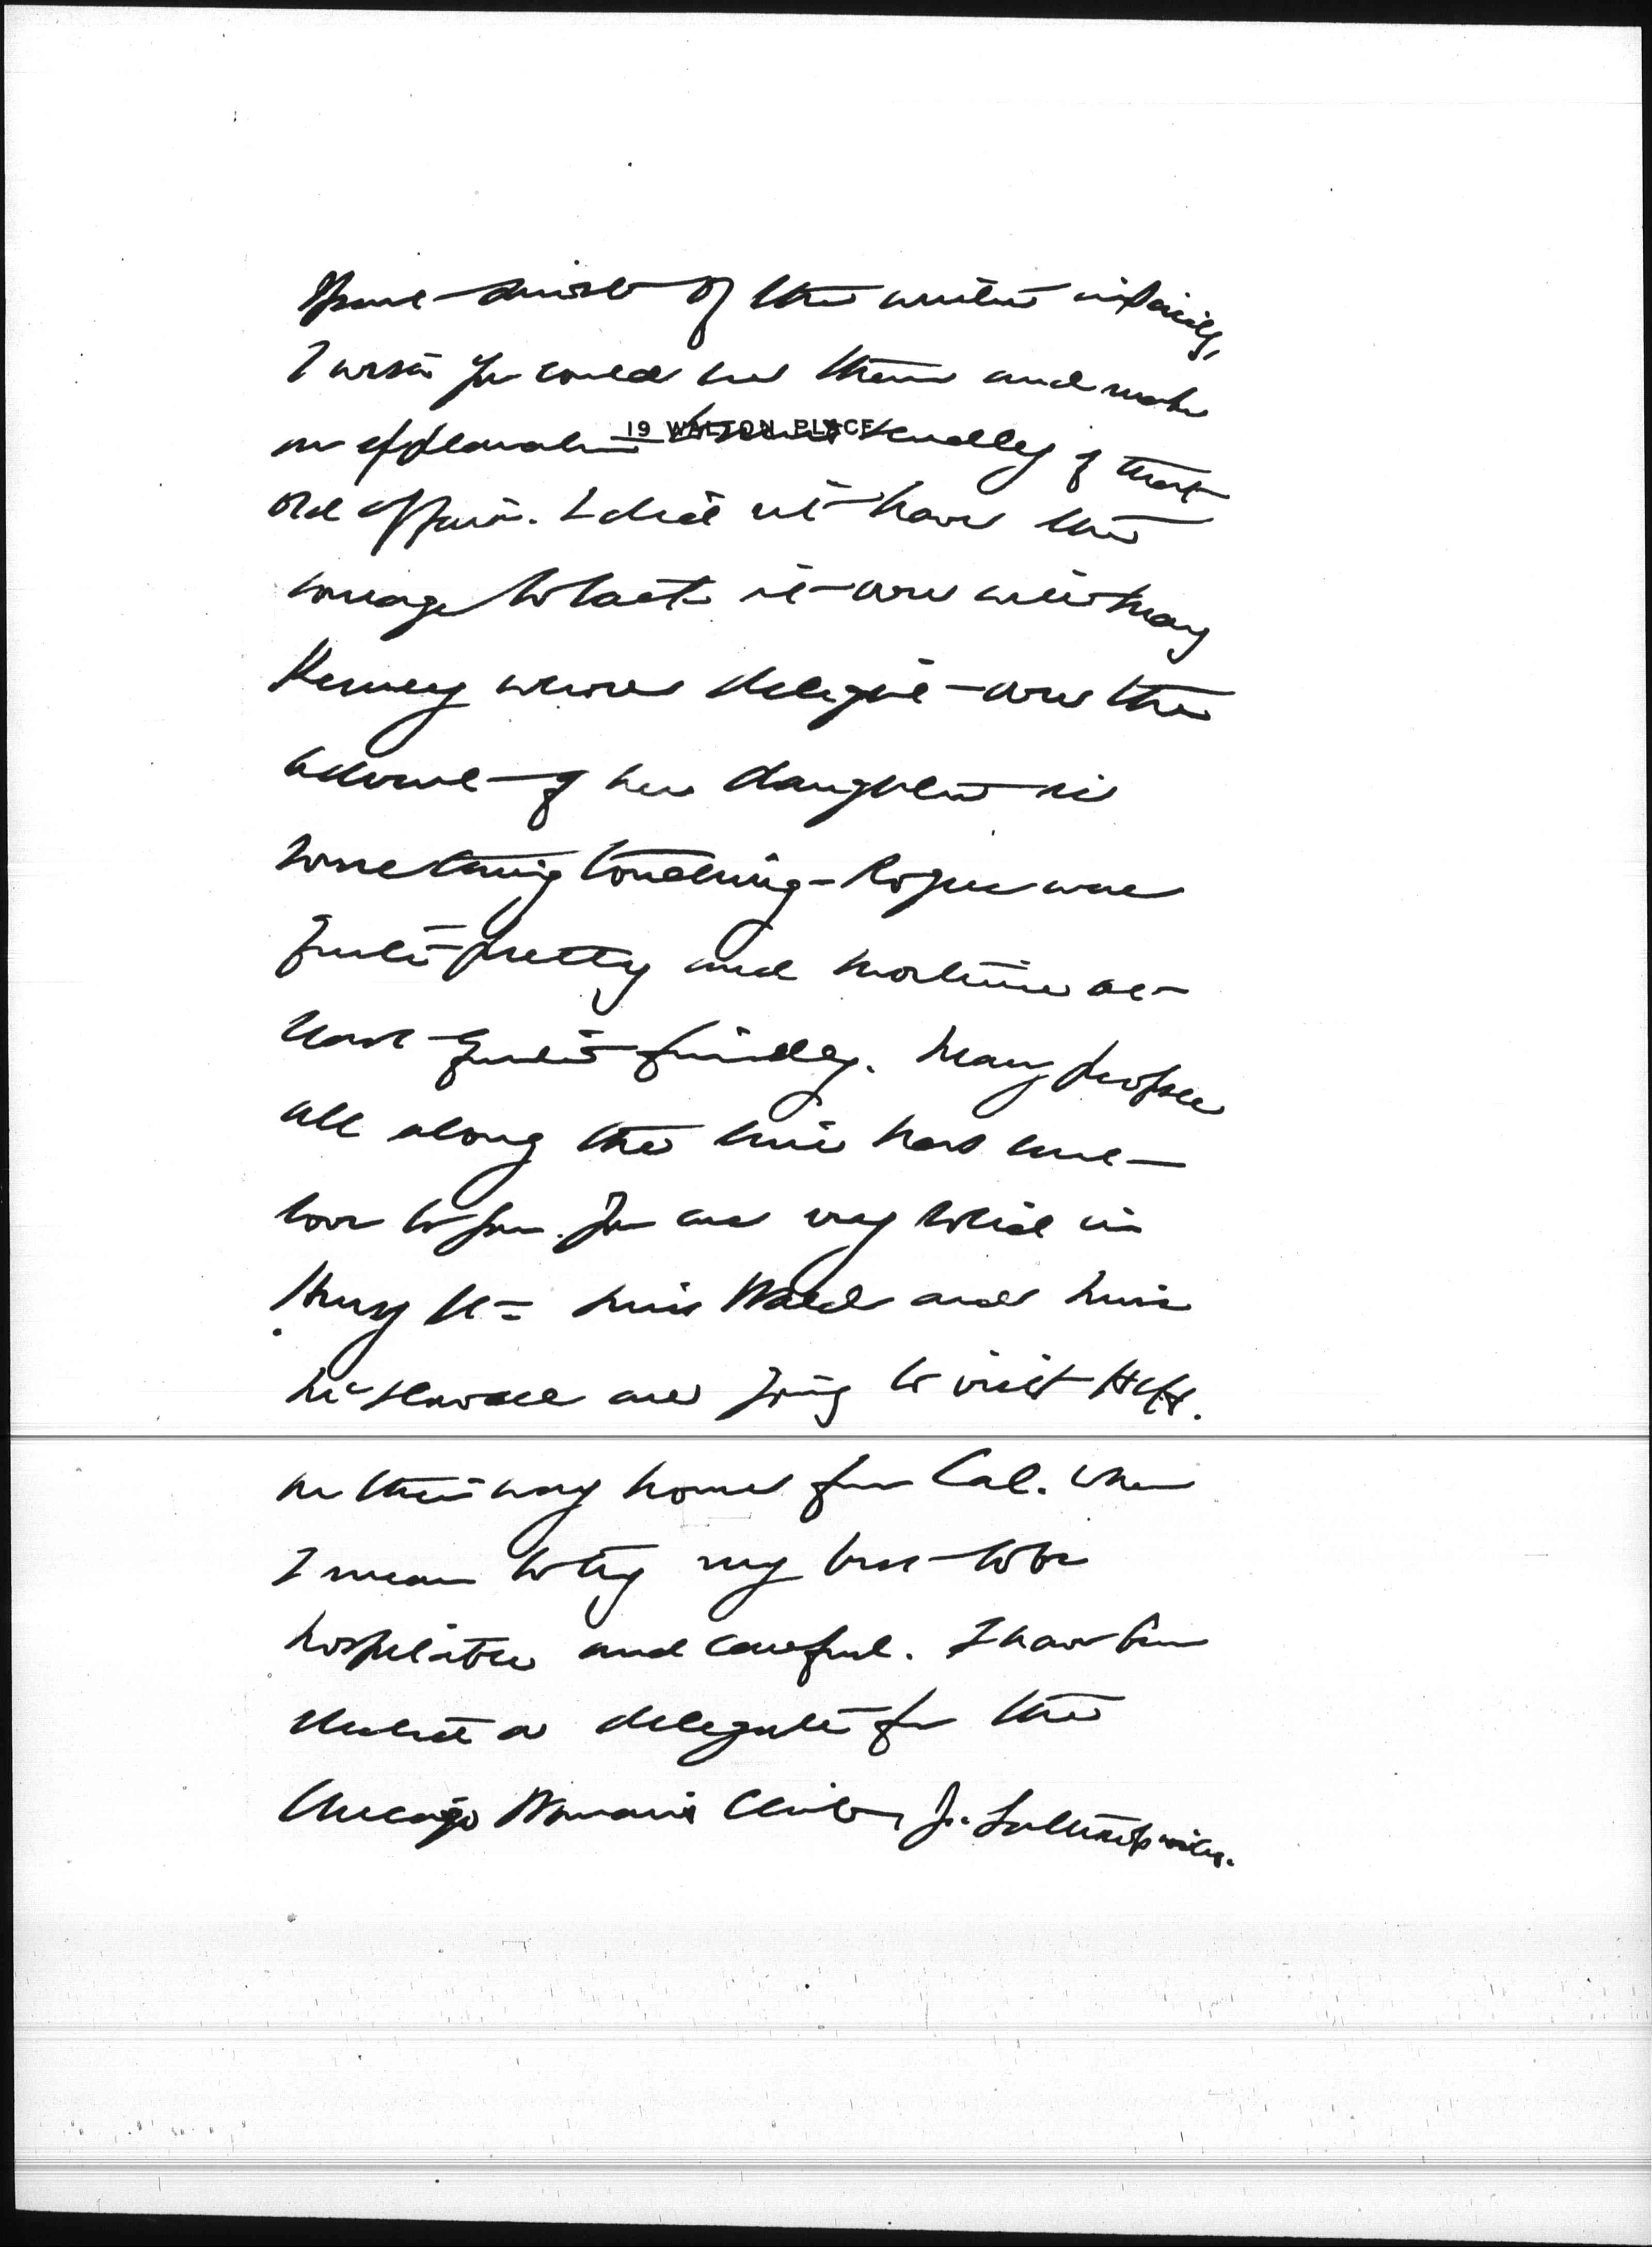 of the winter in Paris,
I wish you could see them and make
an explanation
19 WALTON PLACE
kindly of that
old affair. I did not have the
courage to last it out with May
Kenney whose delight over the
advent of her daughter is
something touching - Roger was
quite pretty and Mortimer at
least quite friendly. Many people
all along the line have sent
love to you. You are very solid in
Henry St = Miss Wald and Miss
McDowell are going to visit H.H.
on their way home from Cal. when
I mean to try my best to be
hospitable and careful. I have been
elected a delegate from the
Chicago Woman's Club